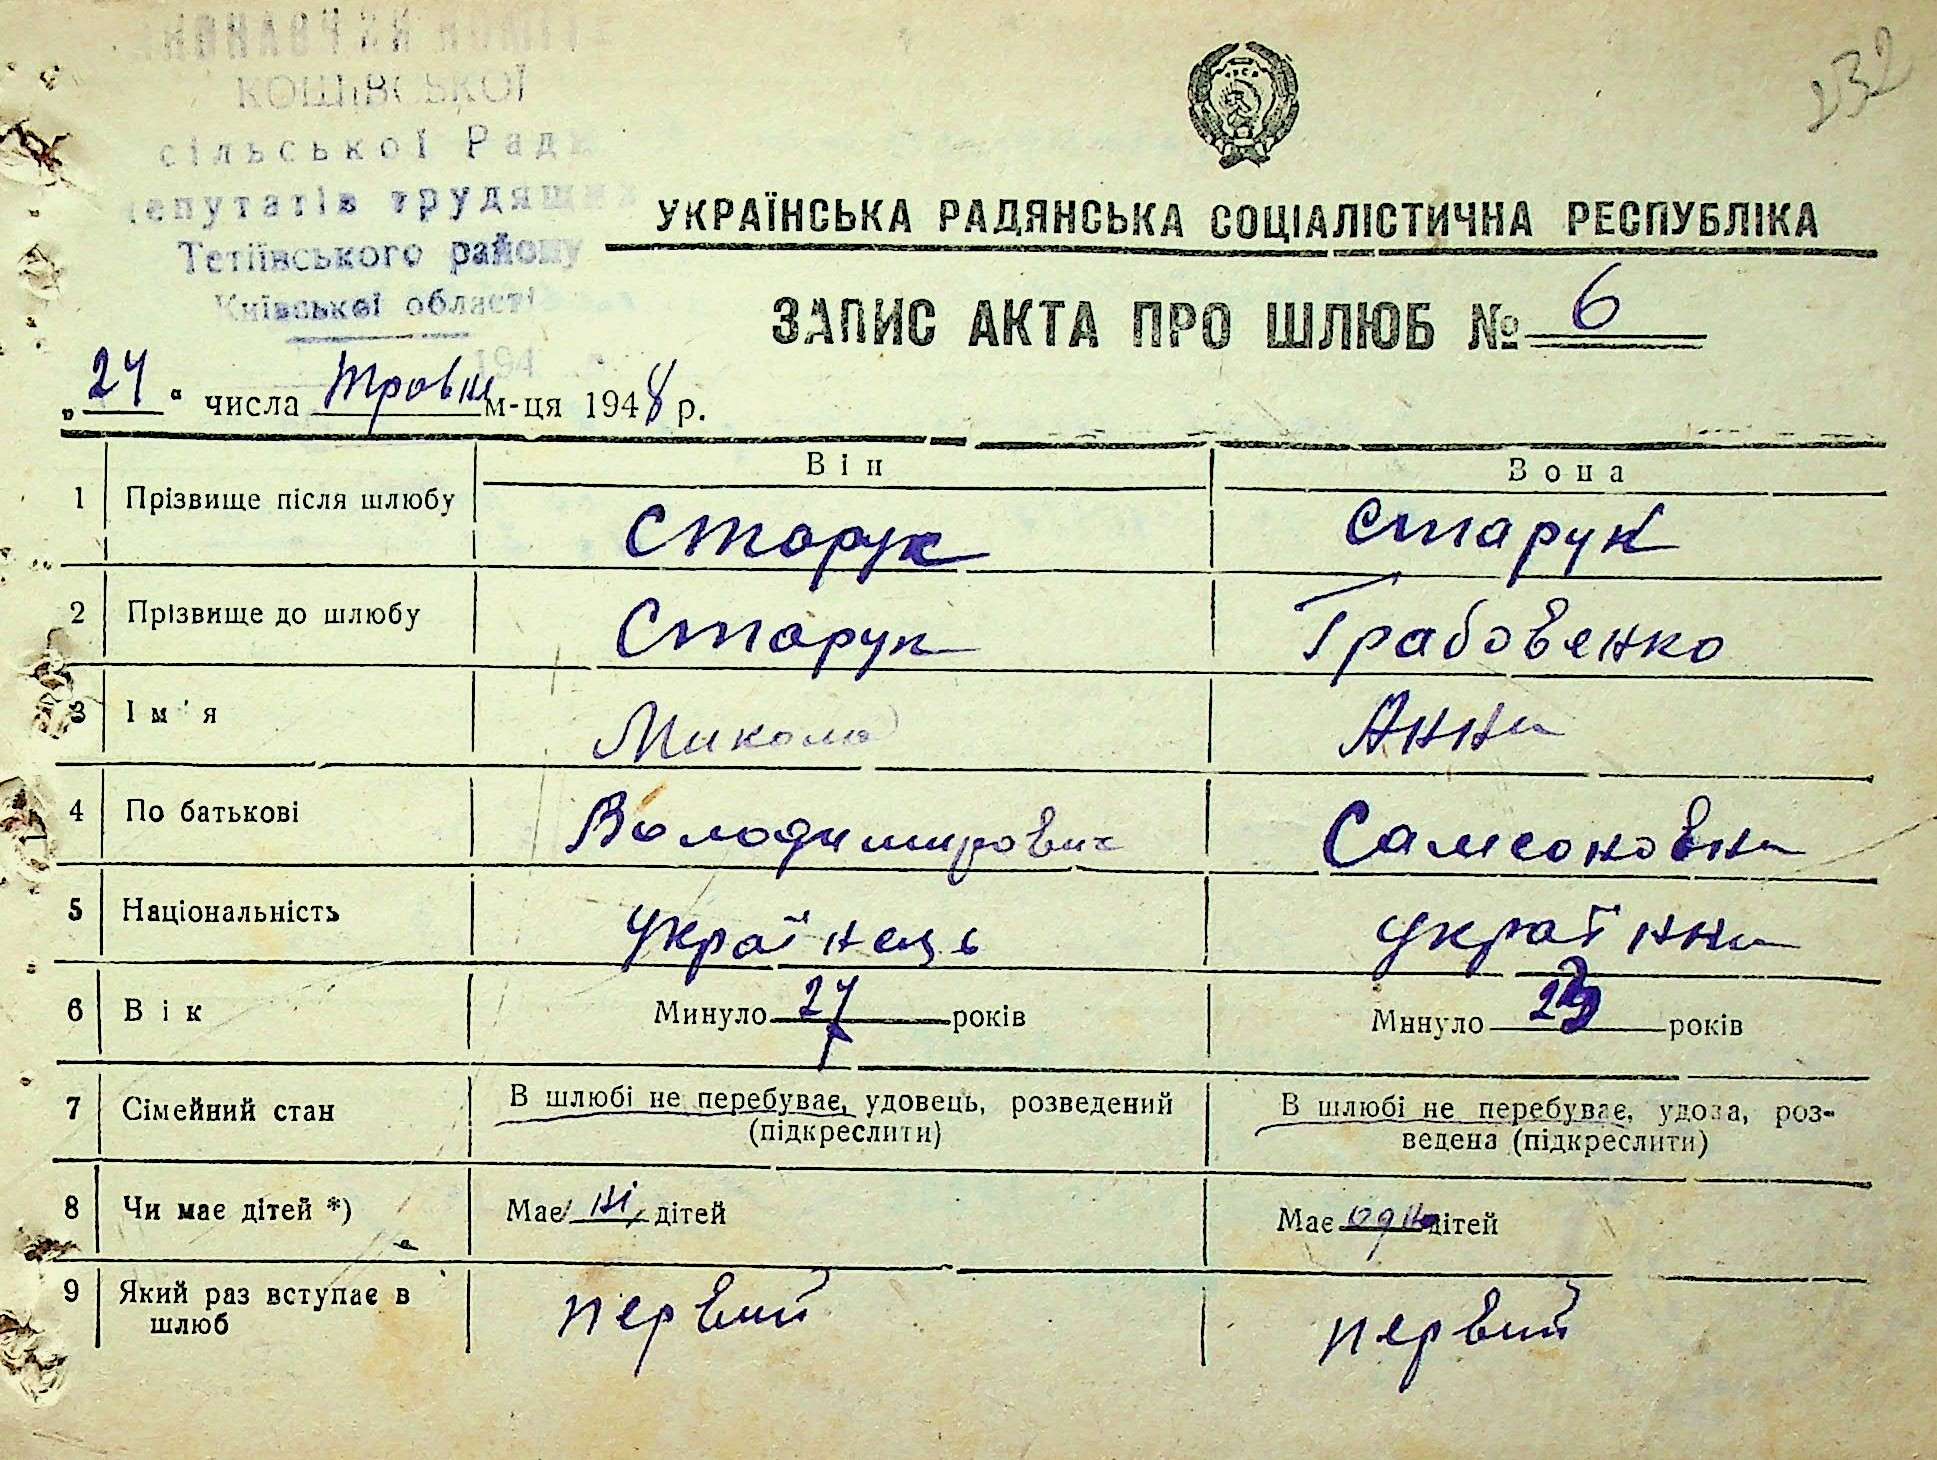 232
КОШІВСЬКОЇ
сільської Ради
депутатів трудящих
Тетіївського району
Київської області
УКРАЇНСЬКА РАДЯНСЬКА СОЦІАЛІСТИЧНА РЕСПУБЛІКА
ЗАПИС АКТА ПРО ШЛЮБ № 6
„24“ числа травня м-ця 1948 р.
Він Вона
1 Прізвище після шлюбу Старук Старук
2 Прізвище до шлюбу Старук Грабовенко
3 Ім'я Микола Анна
4 По батькові Володимирович Самсоновна
5 Національність українець українка
6 Вік Минуло 27 років Минуло років
7 Сімейний стан В шлюбі не перебуває, удовець, розведений (підкреслити) В шлюбі не перебуває, удова, роз-
ведена (підкреслити)
8 Чи має дітей *) Має ні дітей Має одно дітей
9 Який раз вступає в шлюб первий первий